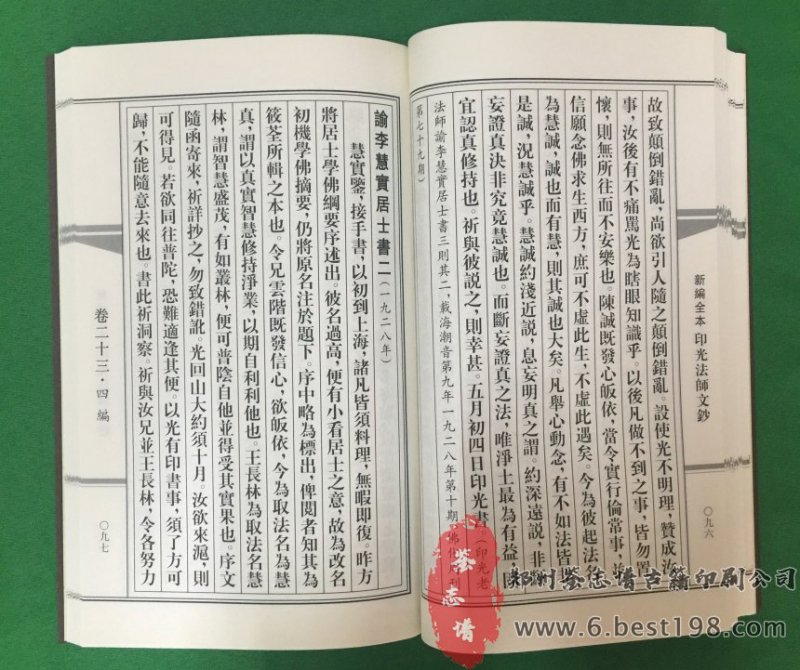 故致顛倒錯亂，尚欲引人隨之顛倒錯亂。設使光不明理，贊成汝
事，汝後有不痛罵光為瞎眼知識乎。以後凡做不到之事，皆勿置
懷，則無所往而不安樂也。陳誠既發心皈依，當令實行倫常事，並
信願念佛求生西方，庶可不虛此生，不虛此遇矣。今為彼起法名
為慧誠，誠也而有慧，則其誠也大矣。凡舉心動念，有不如法皆
是誠，況慧誠乎。慧誠約淺近說，息妄明真之謂。約深遠說，非
妄證真決非究竟慧誠也。而斷妄證真之法，唯淨土最為有益，
宜認真修持也。祈與彼說之，則幸甚。五月初四日印光書。（印光老
法師諭李慧實居士書三則其二，載海潮音第九年一九二八年第十期 刊
第七十九期）
新編全本 印光法師文鈔
〇九六
諭李慧實居士書二（一九二八年）
慧實鑒，接手書，以初到上海，諸凡皆須料理，無暇即復。昨方
將居士學佛綱要序述出。彼名過高，便有小看居士之意，故為改名
初機學佛摘要，仍將原名注於題下。序中略為標出，俾閱者知其為
筱荃所輯之本也。令兄雲階既發信心，欲皈依，今為取法名為慧
真，謂以真實智慧修持淨業，以期自利利他也。王長林為取法名慧
林，謂智慧盛茂，有如叢林，便可普陰自他並得受其實果也。序文
隨函寄來，祈詳抄之，勿致錯訛。光回山大約須十月。汝欲來滬，則
可得見。若欲同往普陀，恐難適逢其便。以光有印書事，須了方可
歸，不能隨意去來也。書此祈洞察。祈與汝兄並王長林，令各努力
卷二十三·四編
〇九七
荼志谱
郑州荼志谱古籍印刷公司
www.6.best198.com